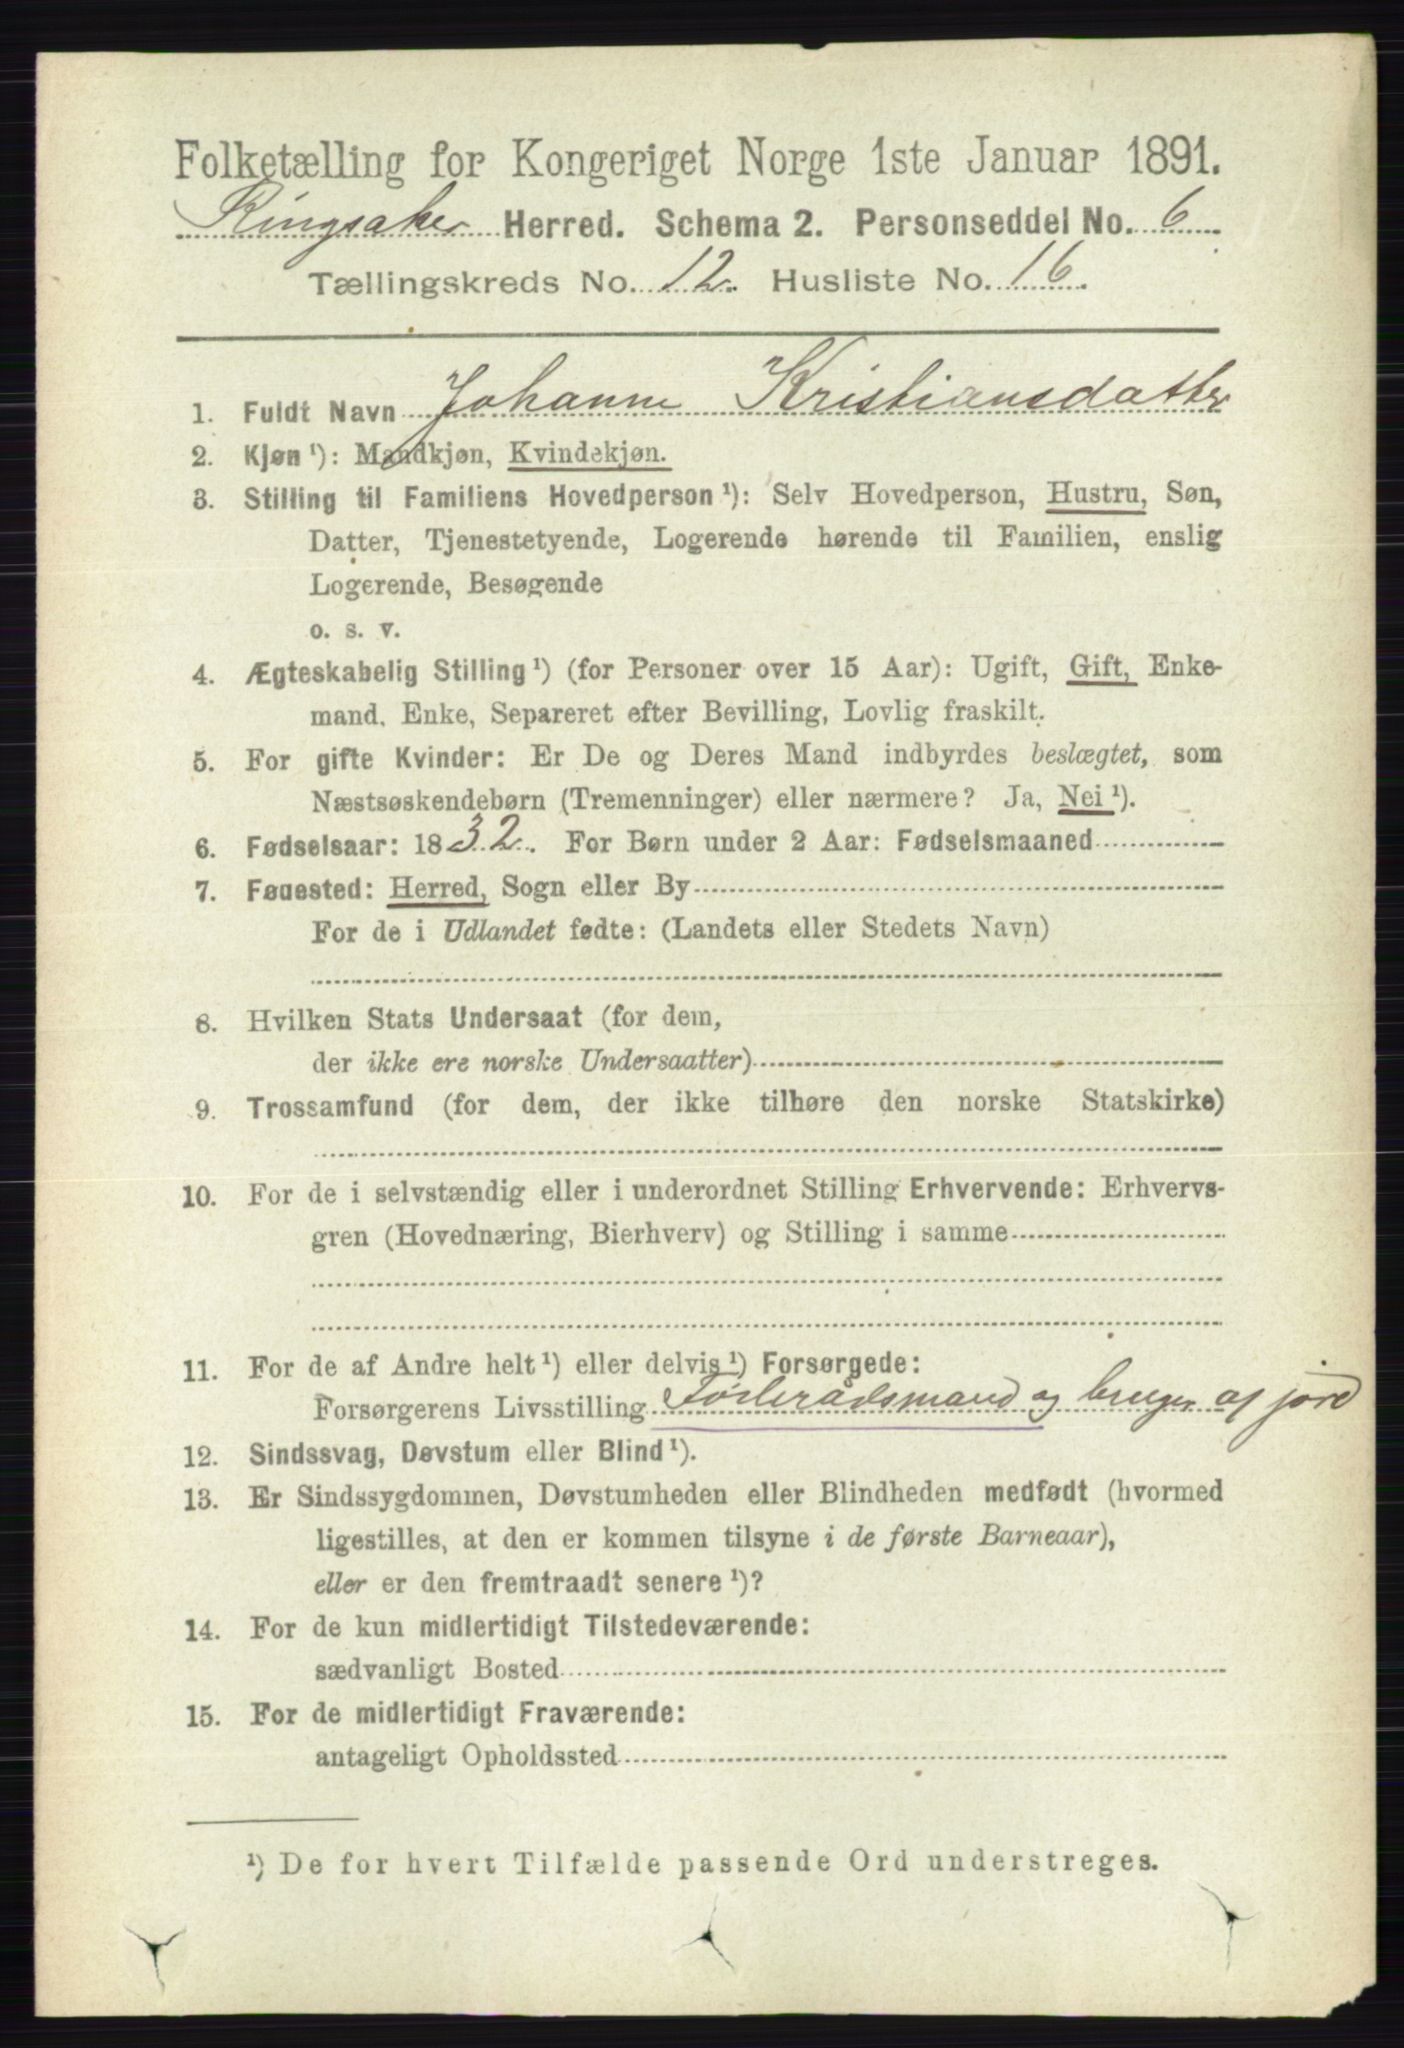 Folketælling for Kongeriget Norge 1ste Januar 1891.
Ringsaker Herred. Schema 2. Personseddel No. 6
Tællingskreds No. 12. Husliste No. 16.
1. Fuldt Navn Johanne Kristiansdatter
2. Kjøn ¹): Mandkjøn, Kvindekjøn.
3. Stilling til Familiens Hovedperson ¹): Selv Hovedperson, Hustru, Søn,
Datter, Tjenestetyende, Logerende hørende til Familien, enslig
Logerende, Besøgende
o. s. v.
4. Ægteskabelig Stilling ¹) (for Personer over 15 Aar): Ugift, Gift, Enke-
mand, Enke, Separeret efter Bevilling, Lovlig fraskilt.
5. For gifte Kvinder: Er De og Deres Mand indbyrdes beslægtet, som
Næstsøskendebørn (Tremenninger) eller nærmere? Ja, Nei ¹).
6. Fødselsaar: 1832. For Børn under 2 Aar: Fødselsmaaned
7. Føuested: Herred, Sogn eller By
For de i Udlandet fødte: (Landets eller Stedets Navn)
8. Hvilken Stats Undersaat (for dem,
der ikke ere norske Undersaatter)
9. Trossamfund (for dem, der ikke tilhøre den norske Statskirke)
10. For de i selvstændig eller i underordnet Stilling Erhvervende: Erhvervs-
gren (Hovednæring, Bierhverv) og Stilling i samme
11. For de af Andre helt ¹) eller delvis ¹) Forsørgede:
Forsørgerens Livsstilling Föderådsmand og bruger af jord
12. Sindssvag, Døvstum eller Blind ¹).
13. Er Sindssygdommen, Døvstumheden eller Blindheden medfødt (hvormed
ligestilles, at den er kommen tilsyne i de første Barneaar),
eller er den fremtraadt senere ¹)?
14. For de kun midlertidigt Tilstedeværende:
sædvanligt Bosted
15. For de midlertidigt Fraværende:
antageligt Opholdssted
¹) De for hvert Tilfælde passende Ord understreges.